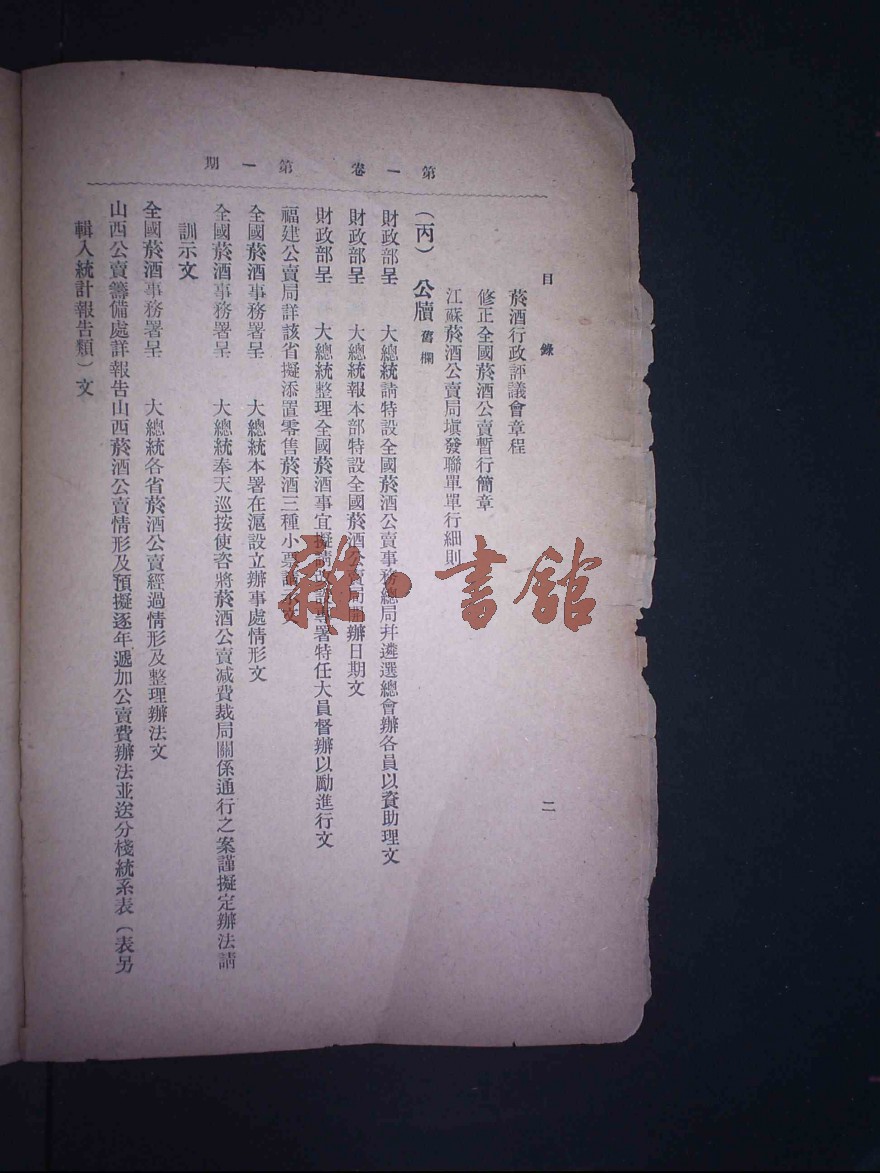 第一卷 第一期
目錄 二
菸酒行政評議會章程
修正全國菸酒公賣暫行簡章
江蘇菸酒公賣局塡發聯單單行細則
(丙) 公牘 舊欄
財政部呈 大總統請特設全國菸酒公賣事務總局幷遴選總會辦各員以資助理文
財政部呈 大總統報本部特設全國菸酒公賣局開辦日期文
財政部呈 大總統整理全國菸酒事宜擬請改設專署特任大員督辦以勵進行文
福建公賣局詳該省擬添置零售菸酒三種小票請示文
全國菸酒事務署呈 大總統本署在滬設立辦事處情形文
全國菸酒事務署呈 大總統奉天巡按使咨將菸酒公賣減費裁局關係通行之案謹擬定辦法請
訓示文
全國菸酒事務署呈 大總統各省菸酒公賣經過情形及整理辦法文
山西公賣籌備處詳報告山西菸酒公賣情形及預擬逐年遞加公賣費辦法並送分棧統系表(表另
輯入統計報告類)文
雜·書館